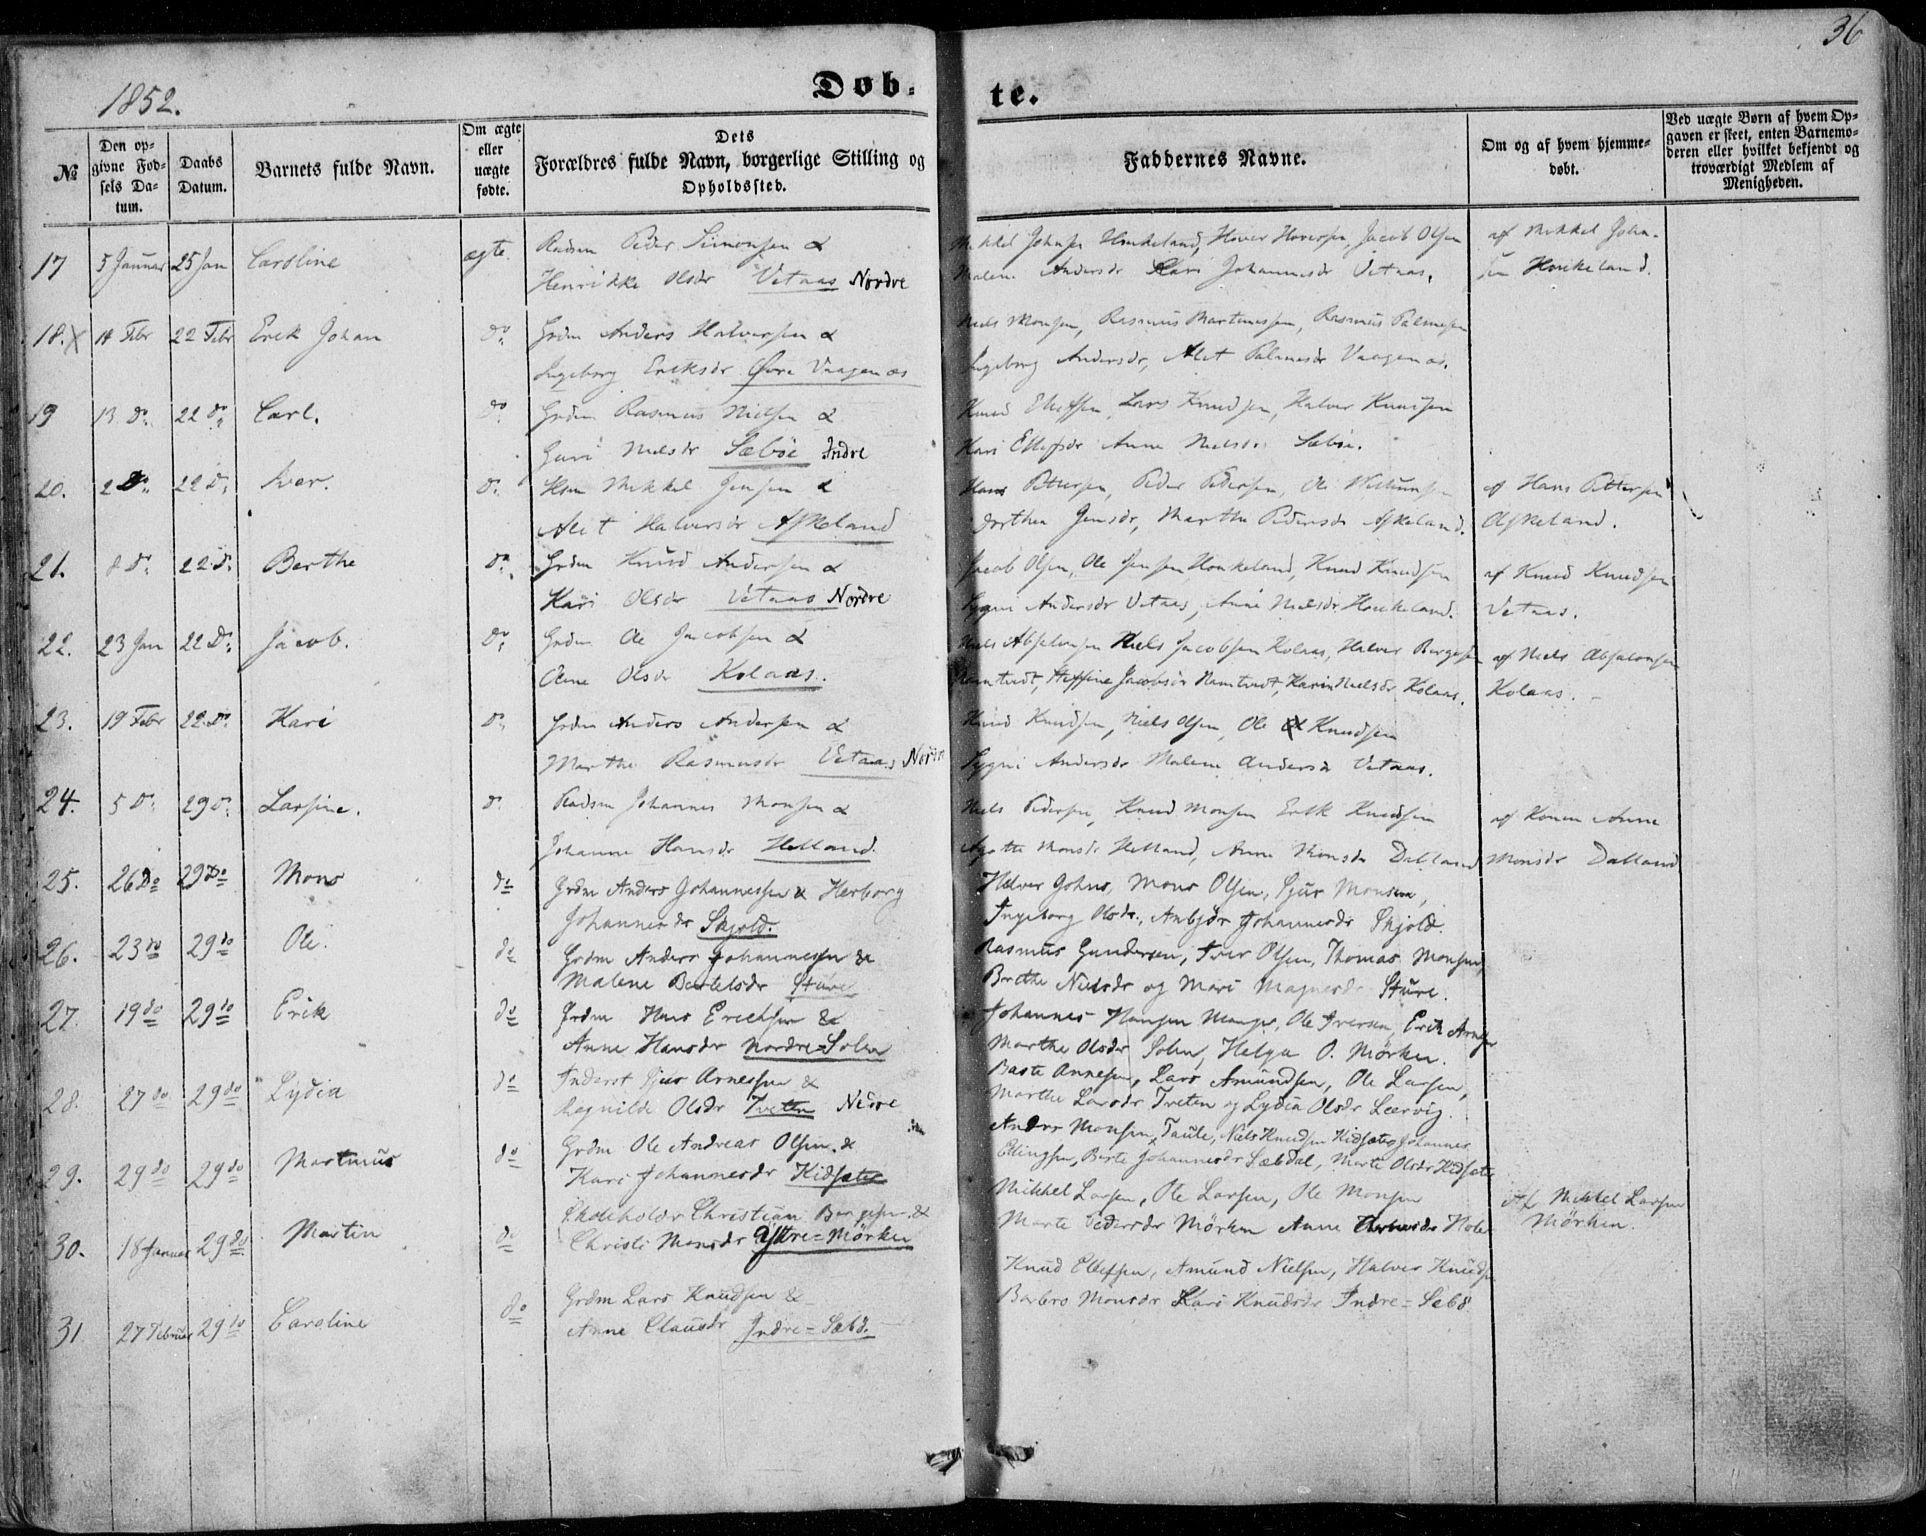 36
1852.
Døb-
te.
№
Den op-
givne Fød-
sels Da-
tum.
Daabs
Datum.
Barnets fulde Navn.
Om ægte
eller
uægte
fødte.
Dets
Forældres fulde Navn, borgerlige Stilling og
Opholdssted.
Faddernes Navne.
Om og af hvem hjemme-
døbt.
Ved uægte Børn af hvem Op-
gaven er skeet, enten Barnemo-
deren eller hvilket bekjendt og
troværdigt Medlem af
Menigheden.
17 5 Januar 25 Jan Caroline ægte. Peder Simonsen &
Henrikke Olsdr Vetaas Nordre
Mikkel Johnsen Houkeland, Haver Haversen, Jacob Olsen
Malene Andersdr Kari Johannesdr Vetaas.
af Mikkel John-
sen Houkeland.
18. 14 Febr 22 Febr Erik Johan do Grdm Anders Halversen &
Ingeborg Eriksdr Øvre Vaagenæs
Niels Monsen, Rasmus Martinussen, Rasmus Palmesen
Ingeborg Andersdr, Alet Palmesdr Vaagenæs.
19 13 do 22 do Carl. do Grdm Rasmus Nielsen &
Guri Nielsdr Sæbøe Indre
Knud Ellefsen, Lars Knudsen, Halver Knudsen
Kari Ellefsdr Anne Nielsdr Sæbøe.
20. 2 do 22 do Iver. do Mikkel Jensen &
Alet Halversdr Askeland
Hans Pettersen, Peder Pedersen, Ole
Dorthea Jensdr, Marthe Pedersdr Askeland.
af Hans Pettersen
Askeland.
21. 8 do 22 do Berthe do Grdm Knud Andersen &
Kari Olsdr Vetaas Nordre
Jacob Olsen, Ole Jensen Houkeland, Knud Knudsen
Sygni Andersdr Vetaas, Anne Nielsdr Houkeland.
af Knud Knudsen
Vetaas.
22. 23 Jan 22 do Jacob. do Grdm Ole Jacobsen &
Anne Olsdr Kolaas.
Niels Absalonsen Niels Jacobsen Kolaas, Halver Borgesen
Namtvedt, Steffine Jacobsdr Namtvedt, Kari Nielsdr Kolaas.
af Niels Absalonsen
Kolaas.
23. 19 Febr 22 do Kari do Grdm Anders Andersen &
Marthe Rasmusdr Vetaas Nordre
Knud Knudsen, Niels Olsen, Ole Knudsen
Sygni Andersdr Malene Andersdr Vetaas.
24. 5 do 29 do Larsine. do Johannes Monsen &
Johanne Hansdr Helland
Niels Pedersen, Knud Monsen Erik Knudsen
Agathe Monsdr Helland, Anne Monsdr Dalland
af Konen Anne
Monsdr Dalland
25. 26 do 29 do Mons do Grdm Anders Johannessen & Herborg
Johannesdr Skjold.
Halver Johns, Mons Olsen, Sjur Monsen,
Ingeborg Olsdr., Anbjør Johannesdr Skjold.
26. 23 do 29 do Ole. do Grdm Anders Johannessen &
Malene Bertelsdr Sture
Rasmus Gundersen, Iver Olsen, Thomas Monsen,
Brethe Nielsdr og Mari Magnesdr Sture.
27. 19 do 29 do Erik do Grdm Hans Erichsen &
Anne Hansdr Nordre=Solen
Johannes Hansen Manger, Ole Iversen, Erik Arnesen
Marthe Olsdr Solen, Helga O. Mörken.
28. 27 do 29 do Lydia do Inderst Sjur Arnessen &
Ragnilde Olsdr Tveten Nedre
Baste Annesen, Lars Amundsen, Ole Larsen,
Marthe Larsdr Tveten og Lydia Olsdr Leervig.
29. 29 do 29 do Martinus do Grdm Ole Andreas Olsen &
Kari Johannesdr Kidsæter
Anders Monsen Taule, Niels Knudsen Kidsæter Johannes
Ellingsen, Berte Johannesdr Sæbdal, Marte Olsdr Kidsæter
30. 18 Januar 29 do Martin do Skoleholdr Christian Børgesen &
Christi Monsdr Østre=Mörken
Mikkel Larsen, Ole Larsen, Ole Monsen
Marte Pedersdr Mörken Anne
Af Mikkel Larsen
Mörken.
31 27 Februar 29 do Caroline do Grdm Lars Knudsen &
Anne Clausdr Indre=Sæbø.
Knud Ellefsen, Amund Nielsen, Halver Knudsen
Barbro Monsdr Kari Knudsdr Indre=Sæbø